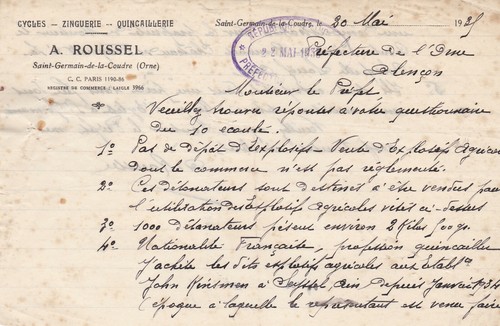 CYCLES — ZINGUERIE — QUINCAILLERIE
A. ROUSSEL
Saint-Germain-de-la-Coudre (Orne)
C. C. PARIS 1190-86
REGISTRE DE COMMERCE : LAIGLE 1966
Saint-Germain-de-la-Coudre, le 20 Mai 19
RÉPUBLIQUE
22 MAI
PRÉFE
Préfecture de l'Orne
Alençon
Monsieur le Préfet
Veuillez trouver réponses à votre questionnaire
du 10 écoulé.
1º Pas de dépôt d'Explosifs — Vente d'Explosifs Agricoles
dont le commerce n'est pas réglementé.
2º Ces détonateurs sont destinés à être vendus pour
l'utilisation des explosifs agricoles cités ci-dessus
3º 1000 détonateurs pèsent environ 2 Kilos
4º Nationalité Française, profession quincailler
J'achète les dits explosifs agricoles aux Etabl
John Kinsmen à Seyssel, Ain depuis Janvier 34
(époque à laquelle le représentant est venu faire